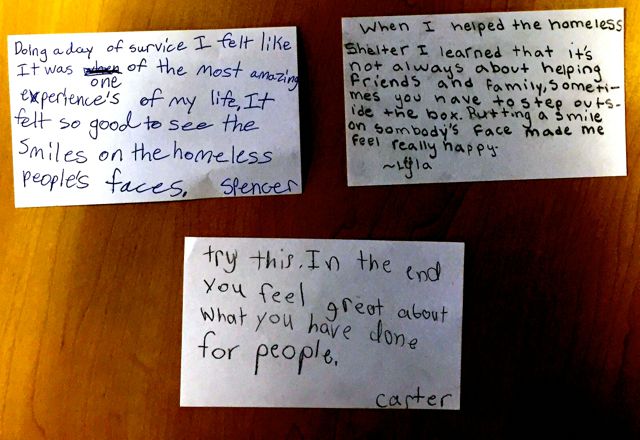 Doing a day of survice I felt like
It was one of the most amazing
experience's of my life, It
felt so good to see the
Smiles on the homeless
people's faces. Spencer
When I helped the homeless
Shelter I learned that it's
not always about helping
friends and family, Someti-
mes you have to step outs-
ide the box. Putting a smile
on sombody's face made me
feel really happy.
~Lyla
try this. In the end
You feel great about
What you have done
for people.
carter